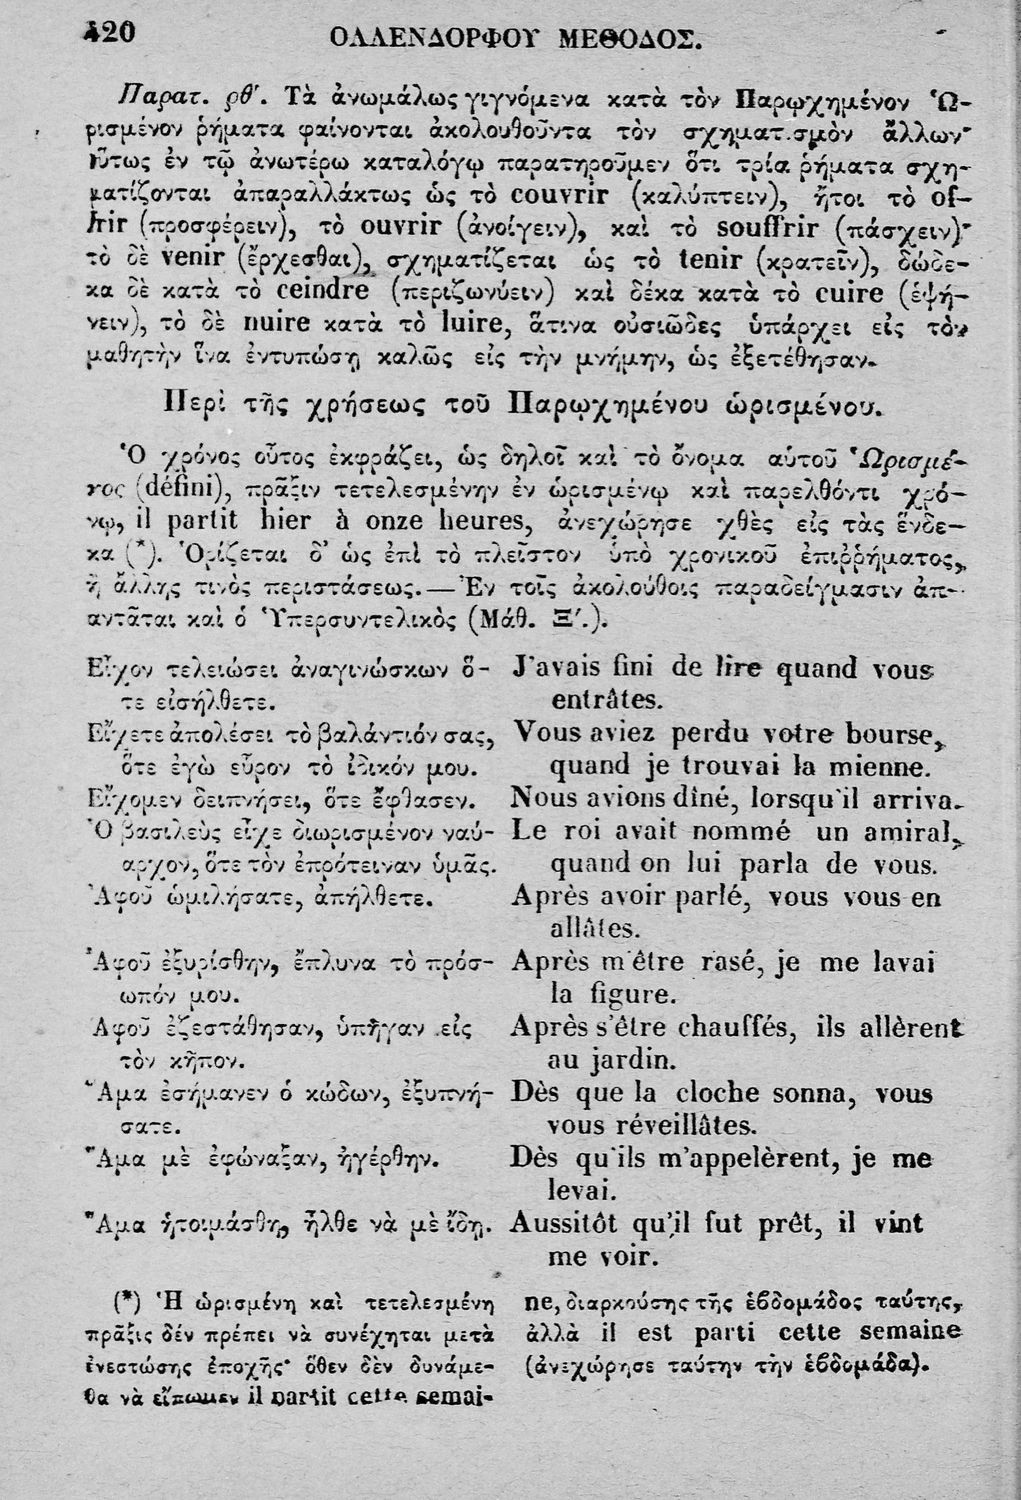 420
ΟΛΛΕΝΔΟΡΦΟΥ ΜΕΘΟΔΟΣ.
Παρατ. ρθ′. Τὰ ἀνωμάλως γιγνόμενα κατὰ τὸν Παρῳχημένον Ὡ-
ρισμένον ῥήματα φαίνονται ἀκολουθοῦντα τὸν σχηματισμὸν ἄλλων·
οὕτως ἐν τῷ ἀνωτέρω καταλόγῳ παρατηροῦμεν ὅτι τρία ῥήματα σχη-
ματίζονται ἀπαραλλάκτως ὡς τὸ couvrir (καλύπτειν), ἤτοι τὸ of-
frir (προσφέρειν), τὸ ouvrir (ἀνοίγειν), καὶ τὸ souffrir (πάσχειν)·
τὸ δὲ venir (ἔρχεσθαι), σχηματίζεται ὡς τὸ tenir (κρατεῖν), δώδε-
κα δὲ κατὰ τὸ ceindre (περιζωνύειν) καὶ δέκα κατὰ τὸ cuire (ἑψή-
νειν), τὸ δὲ nuire κατὰ τὸ luire, ἅτινα οὐσιῶδες ὑπάρχει εἰς τὸν
μαθητὴν ἵνα ἐντυπώσῃ καλῶς εἰς τὴν μνήμην, ὡς ἐξετέθησαν.
Περὶ τῆς χρήσεως τοῦ Παρῳχημένου ὡρισμένου.
Ὁ χρόνος οὗτος ἐκφράζει, ὡς δηλοῖ καὶ τὸ ὄνομα αὑτοῦ Ὡρισμέ-
νος (défini), πρᾶξιν τετελεσμένην ἐν ὡρισμένῳ καὶ παρελθόντι χρό-
νῳ, il partit hier à onze heures, ἀνεχώρησε χθὲς εἰς τὰς ἕνδε-
κα (*). Ὁρίζεται δ' ὡς ἐπὶ τὸ πλεῖστον ὑπὸ χρονικοῦ ἐπιῤῥήματος,
ἢ ἄλλης τινὸς περιστάσεως.—Ἐν τοῖς ἀκολούθοις παραδείγμασιν ἀπ-
αντᾶται καὶ ὁ Ὑπερσυντελικὸς (Μάθ. Ξ′.).
Εἶχον τελειώσει ἀναγινώσκων ὅ-
τε εἰσήλθετε.
J'avais fini de lire quand vous
entrâtes.
Εἴχετε ἀπολέσει τὸ βαλάντιόν σας,
ὅτε ἐγὼ εὗρον τὸ ἰδικόν μου.
Vous aviez perdu votre bourse,
quand je trouvai la mienne.
Εἴχομεν δειπνήσει, ὅτε ἔφθασεν.
Nous avions dîné, lorsqu'il arriva.
Ὁ βασιλεὺς εἶχε διωρισμένον ναύ-
αρχον, ὅτε τὸν ἐπρότειναν ὑμᾶς.
Le roi avait nommé un amiral,
quand on lui parla de vous.
Ἀφοῦ ὡμιλήσατε, ἀπήλθετε.
Après avoir parlé, vous vous en
allâtes.
Ἀφοῦ ἐξυρίσθην, ἔπλυνα τὸ πρόσ-
ωπόν μου.
Après m'être rasé, je me lavai
la figure.
Ἀφοῦ ἐζεστάθησαν, ὑπῆγαν εἰς
τὸν κῆπον.
Après s'être chauffés, ils allèrent
au jardin.
Ἅμα ἐσήμανεν ὁ κώδων, ἐξυπνή-
σατε.
Dès que la cloche sonna, vous
vous réveillâtes.
Ἅμα μὲ ἐφώναξαν, ἠγέρθην.
Dès qu'ils m'appelèrent, je me
levai.
Ἅμα ἡτοιμάσθη, ἦλθε νὰ μὲ ἴδῃ.
Aussitôt qu'il fut prêt, il vint
me voir.
(*) Ἡ ὡρισμένη καὶ τετελεσμένη
πρᾶξις δέν πρέπει νὰ συνέχηται μετὰ
ἐνεστώσης ἐποχῆς· ὅθεν δὲν δυνάμε-
θα νὰ εἴπωμεν il partit cette semai-
ne, διαρκούσης τῆς ἑβδομάδος ταύτης,
ἀλλὰ il est parti cette semaine
(ἀνεχώρησε ταύτην τὴν ἑβδομάδα).